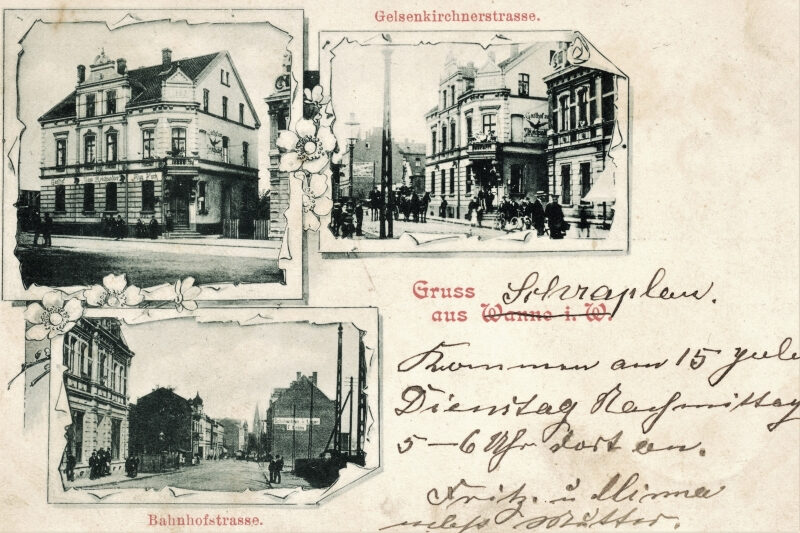 Gelsenkirchnerstrasse.
Gruss Schraplau.
aus Wanne i. W.
Kommen am 15 Juli
Dienstag Nachmittag
5-6 Uhr dort an.
Fritz. u Minna
nebst Mutter.
Bahnhofstrasse.